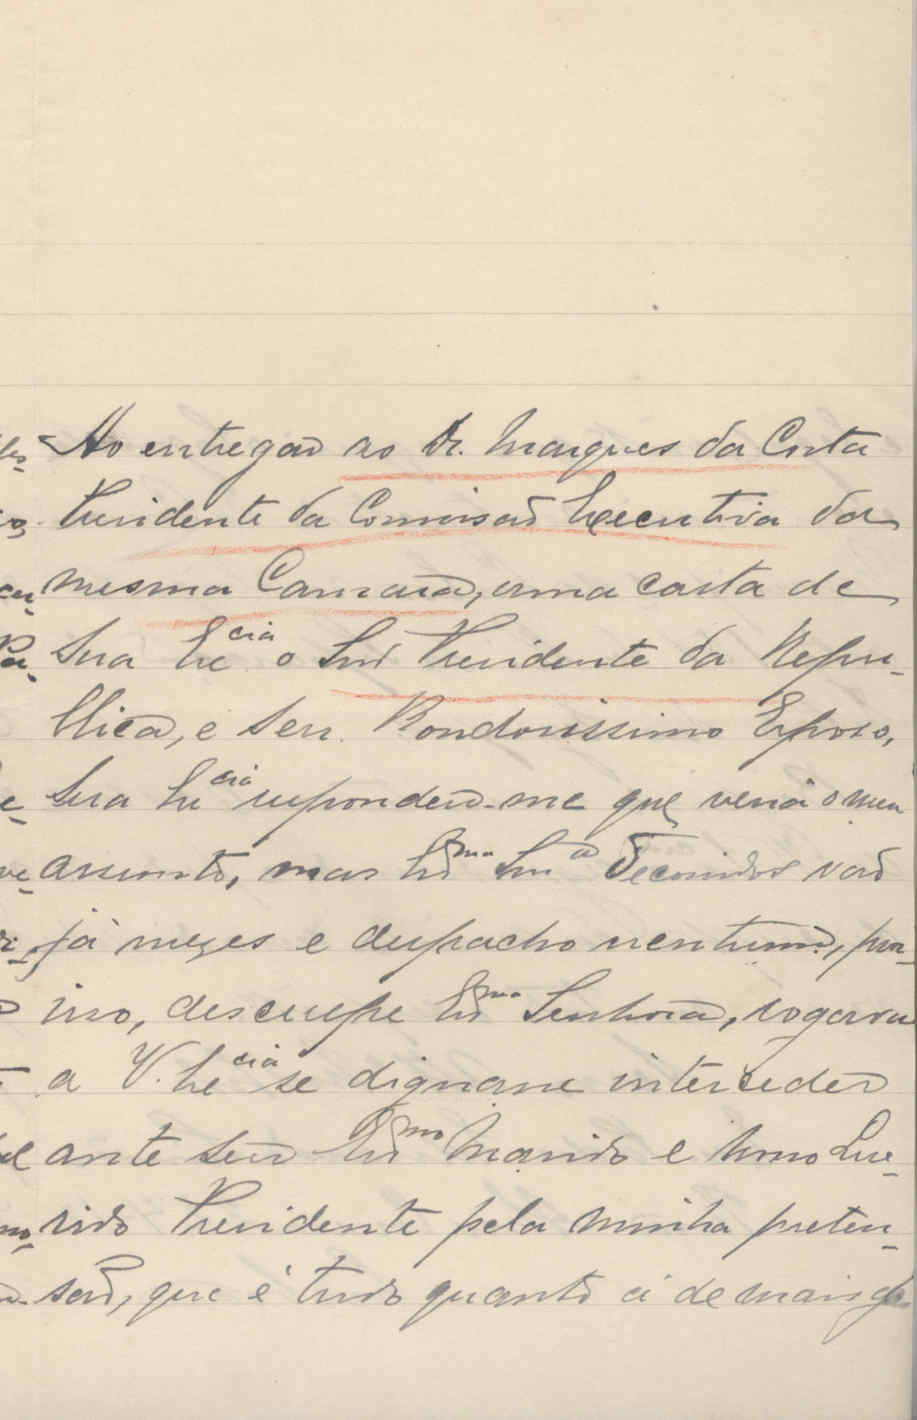 Ao entregar ao Dr. Marques da Costa
Presidente da Comissão Executiva da
mesma Camara, uma carta de
Sua Ex.cia o Snr Presidente da Repu-
blica, e seu Bondosissimo Esposo,
Sua Ex.cia respondeu-me que veria o meu
assunto, mas Ex.ma Snr.a decorridos são
já mezes e despacho nenhum, por
isso, desculpe Ex.ma Senhora, rogava
a V. Ex.cia se dignasse interceder
ante seu Ex.mo Marido e Nosso Que-
rido Presidente pela minha preten-
são, que é tudo quanto á de mais